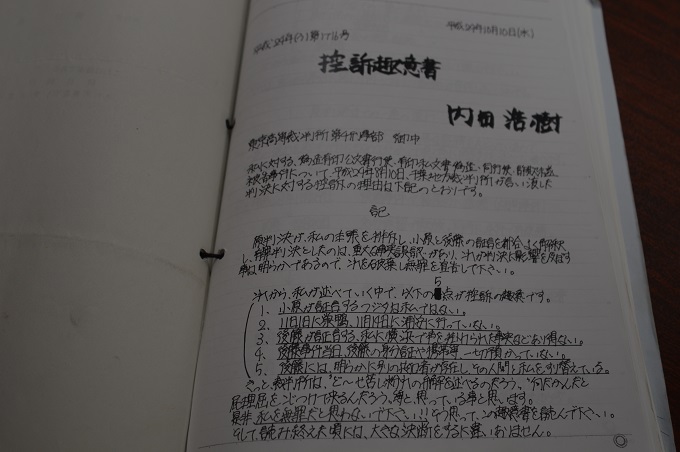 平成29年(う)第1776号
平成29年10月10日(水)
控訴趣意書
内田浩樹
東京高等裁判所第十刑事部 御中
私に対する、偽造有印公文書行使、有印私文書偽造、同行使、詐欺
被告事件について、平成29年8月10日、千葉地方裁判所が言い渡した
判決に対する控訴の理由は下記のとおりです。
記
原判決は、私の主張を排斥し、小原と後藤の証言を都合よく解釈
し、有罪判決としたのは、重大な事実誤認があり、これが判決に影響を及ぼす
事は明らかであるので、これを破棄し無罪を宣告して下さい。
これから、私が述べていく中で、以下の5点が控訴の趣意です。
1. 小原が証言するフジタは私ではない。
2. 11月1日に巣鴨、11月14日に浦安に行っていない。
3. 後藤が証言する、私に横浜で車を
4. 後藤事件当日、後藤の身分証や携帯等、一切預かっていない。
5. 後藤には、明らかに別の共犯者が存在し、その人間と私をすり替えている。
きっと、裁判所は、"ど〜せ苦し紛れの弁解を述べるのだろう、"何だかんだと
屁理屈をこじつけて来るんだろう。"等と思っている事と思います。
是非、私を無罪だと思わないで下さい!! そう思って、この趣意書を読んで下さい。
そして、読み終えた頃には、大きな決断をするに違いありません。